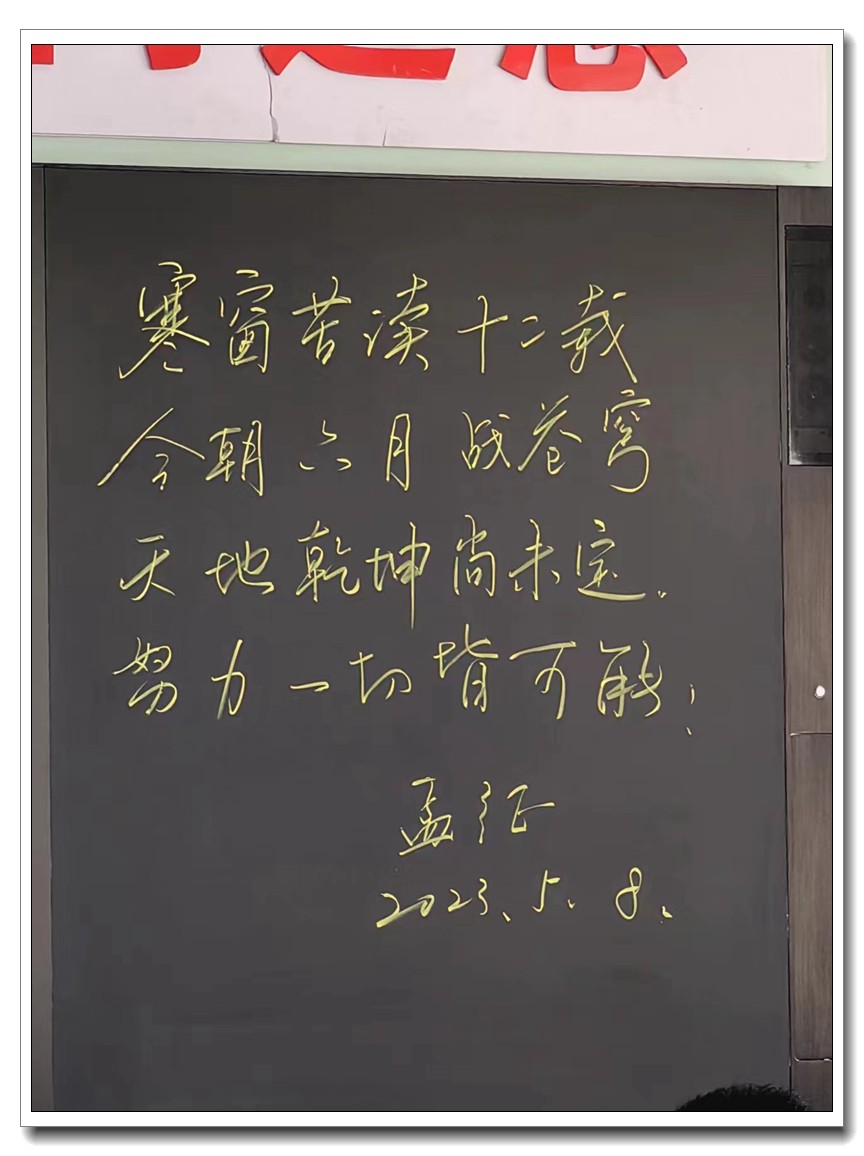 寒窗苦读十二载
今朝六月战苍穹
天地乾坤尚未定.
努力一切皆可能!
孟征
2023.5.8.